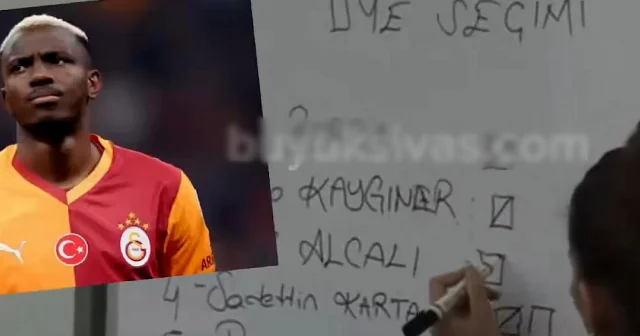 ÜYE SEÇİMİ
buyuksivas.com
KAYGINER
ALÇALI
4-Sadettin KARTA